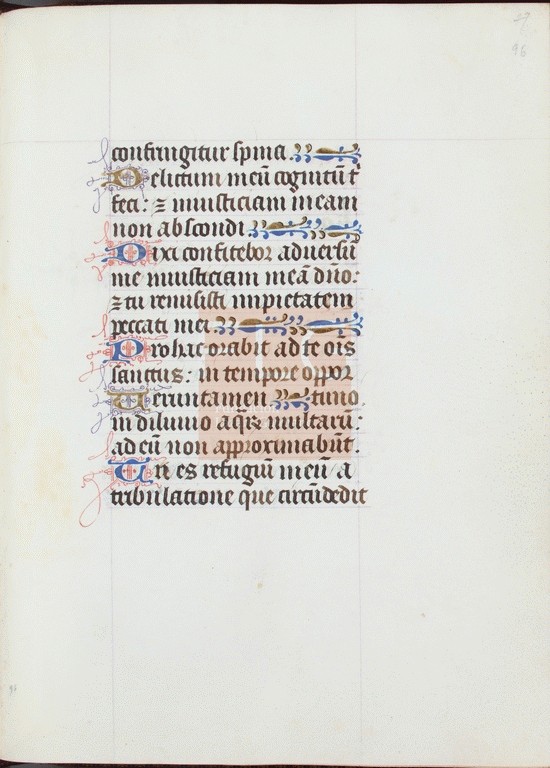 97
96
confringitur spina.
Delictum meū cognitū t̄
feci: ⁊ iniusticiam meam
non abscondi.
Dixi confitebor aduersū
me iniusticiam meā dn̄o:
⁊ tu remisisti impietatem
peccati mei.
Pro hac orabit ad te oīs
sanctus: in tempore oppor
Veruntamen tuno.
in diluuio aq̄ꝝ multarū:
ad eū non approximabūt.
Tu es refugiū meū a
tribulatione que circūdedit